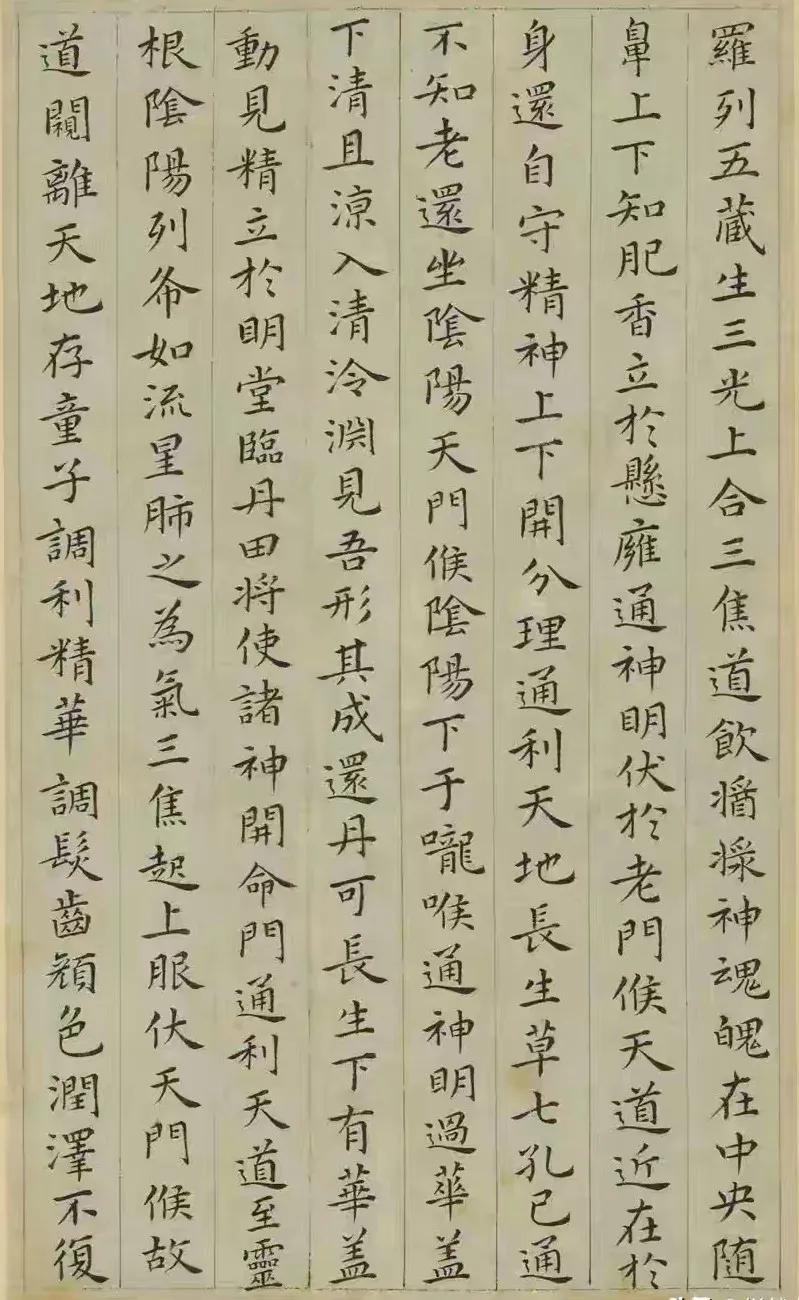 羅列五蔵生三光上合三焦道飲醬漿神魂魄在中央随
鼻上下知肥香立於懸廱通神明伏於老門候天道近在於
身還自守精神上下開分理通利天地長生草七孔已通
不知老還坐陰陽天門候陰陽下于嚨喉通神明過華盖
下清且涼入清泠淵見吾形其成還丹可長生下有華盖
動見精立於明堂臨丹田将使諸神開命門通利天道至靈
根陰陽列布如流星肺之為氣三焦起上服伏天門候故
道闚離天地存童子調利精華調髮齒顔色潤澤不復